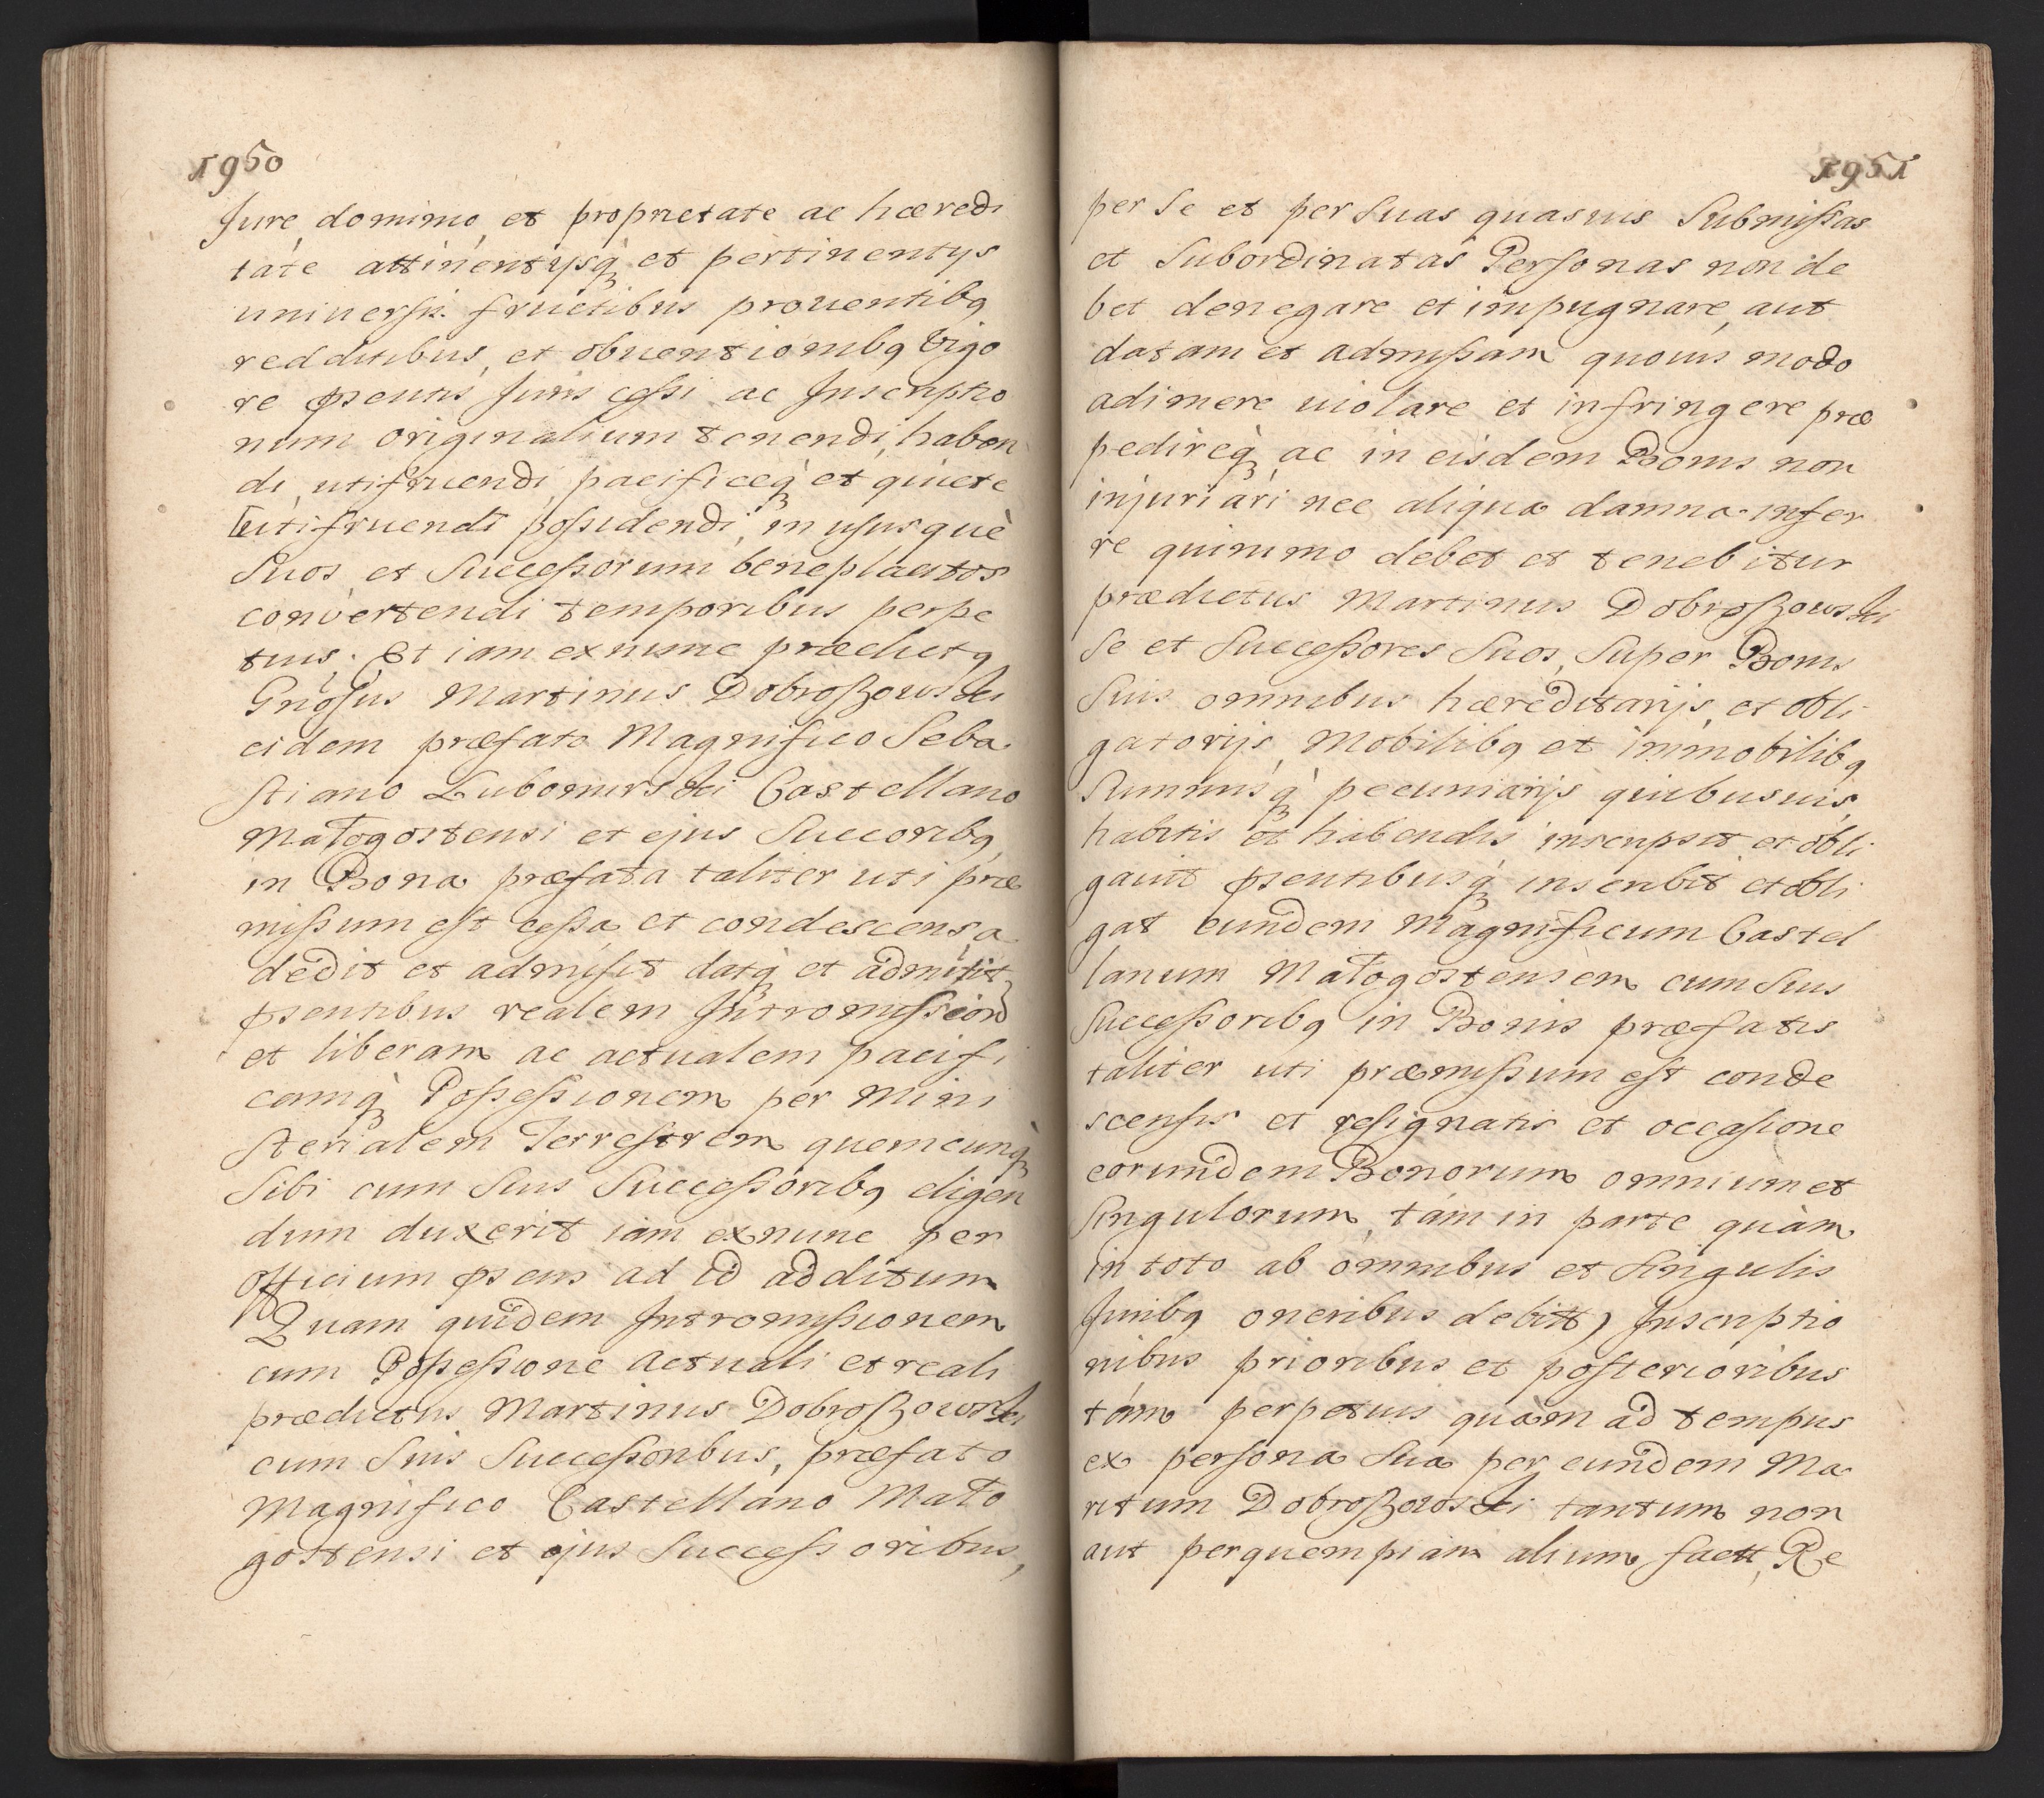 1950
Jure, dominio, et proprietate ac hæredi
tate attinentijsq́ et pertinentijs
uniuersis fructibus prouentibq
redditibus, et obuentionibq Vigo
re pſentis Juris ceſsi ac Inscriptio
num originalium tenendi, haben
di, utifruendi, pacificeq́ et quiete
utifruendi poſsidendi, in uſusquè
Suos et Succeſsorum beneplacitos
convertendi temporibus perpe
tuis. Et iam exnunc prædictq
Gnoſus Martinus Dobroſzowski
eidem præfato Magnifico Seba
ſtiano Lubomirski Castellano
Małogostensi et ejus Succoribq
in Bona præfata taliter uti præ
miſsum eſt ceſsa et condescensa
dedit et admiſit datq́ et admittit
pſentibus realem Intromiſsionē
et liberam ac actualem pacifi
camq́ Poſseſsionem per Mini
ſterialem Terreſtrem quemcunq́
Sibi cum Suis Succeſsoribq eligen
dum duxerit iam exnunc per
Officium pſens ad id additum
Quam quidem Intromiſsionem
cum Poſseſsione Actuali et reali
prædictus Martinus Dobroſzowski
cum Suis Succeſsoribus, præfato
Magnifico Castellano Mało
gostensi et ejus Succeſsoribus,
1951
per Se et per Suas quasuis Submiſsas
et Subordinatas Perſonas non de
bet denegare et impugnare, aut
datam et admiſsam quouis modo
adimere uiolare et infringere præ
pedireq́ ac in eisdem Bonis non
injuriari nec aliqua damna infer
re quinimo debet et tenebitur
prædictus Martinus Dobroſzowski
Se et Succeſsores Suos, Super Bonis
Suis omnibus hæreditarijs, et obli
gatorijs, Mobilibq et immobilibq
Summisq́ pecuniarijs quibusuis,
habitis et habendis inscripsit et obli
gauit pſentibusq́ inscribit et obli
gat eundem Magnificum Castel
lanum Małogostensem cum Suis
Succeſsoribq in Bonis præfatis
taliter uti præmiſsum eſt conde
scenſis et reſignatis et occaſione
eorundem Bonorum omnium et
Singulorum, tam in parte quàm
in toto ab omnibus et Singulis
Juribq oneribus debitt) Inscriptio
nibus prioribus et poſterioribus
tam perpetuis quàm ad tempus
ex perſona Sua per eundem Ma
ritum Dobroſzowski tantum non
aut perquempiam alium factt, Re